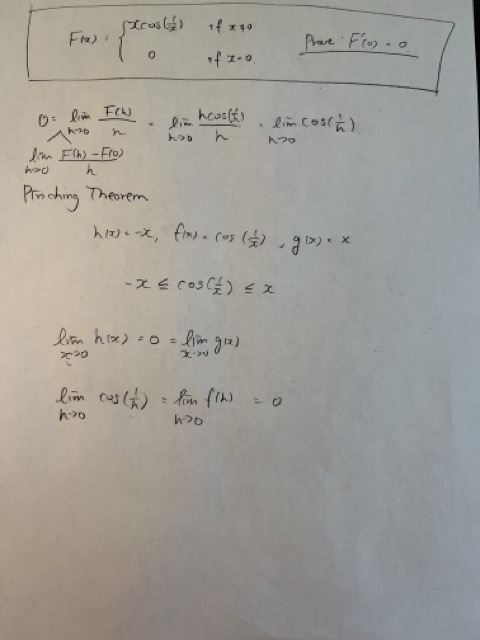 F(x) = { xcos(1/x) if x≠0
0 if x=0.
Prove: F'(0) = 0
0 = lim h→0 F(h)/h = lim h→0 hcos(1/h)/h = lim h→0 cos(1/h)
lim h→0 F(h)-F(0)/h
Pinching Theorem
h(x) = -x, f(x) = cos(1/x), g(x) = x
-x ≤ cos(1/x) ≤ x
lim x→0 h(x) = 0 = lim x→0 g(x)
lim h→0 cos(1/h) = lim h→0 f(h) = 0